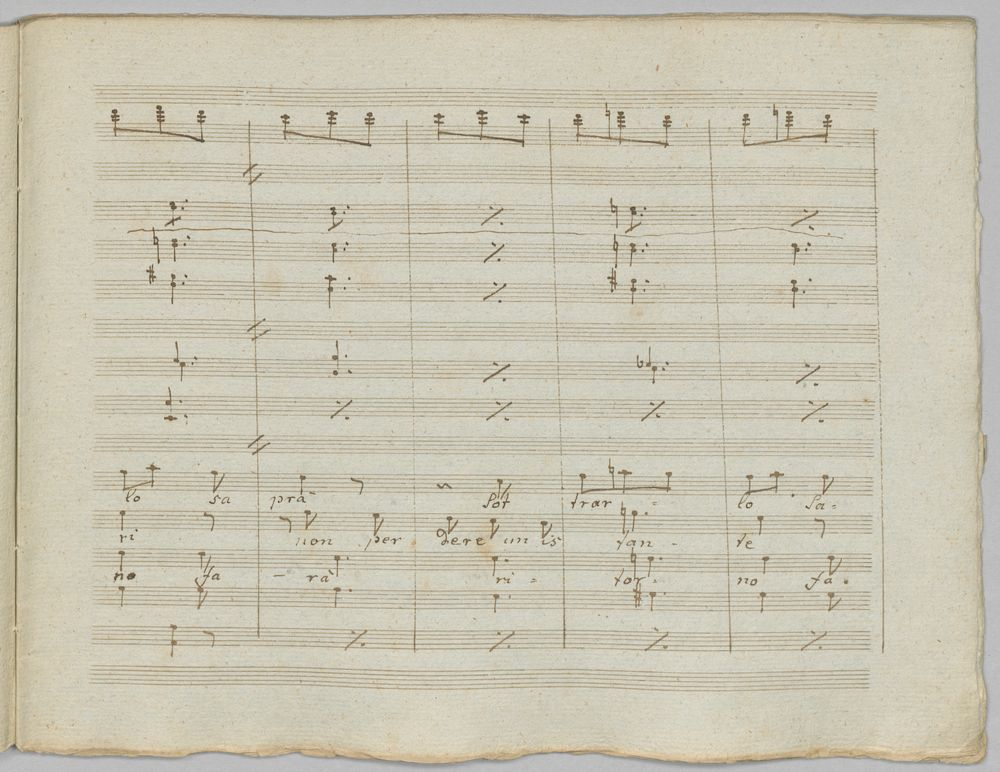 lo sa prà Sot trar - lo sa-
ri non per dere un is tan - te
no fa - rà ri - tor - no fa -